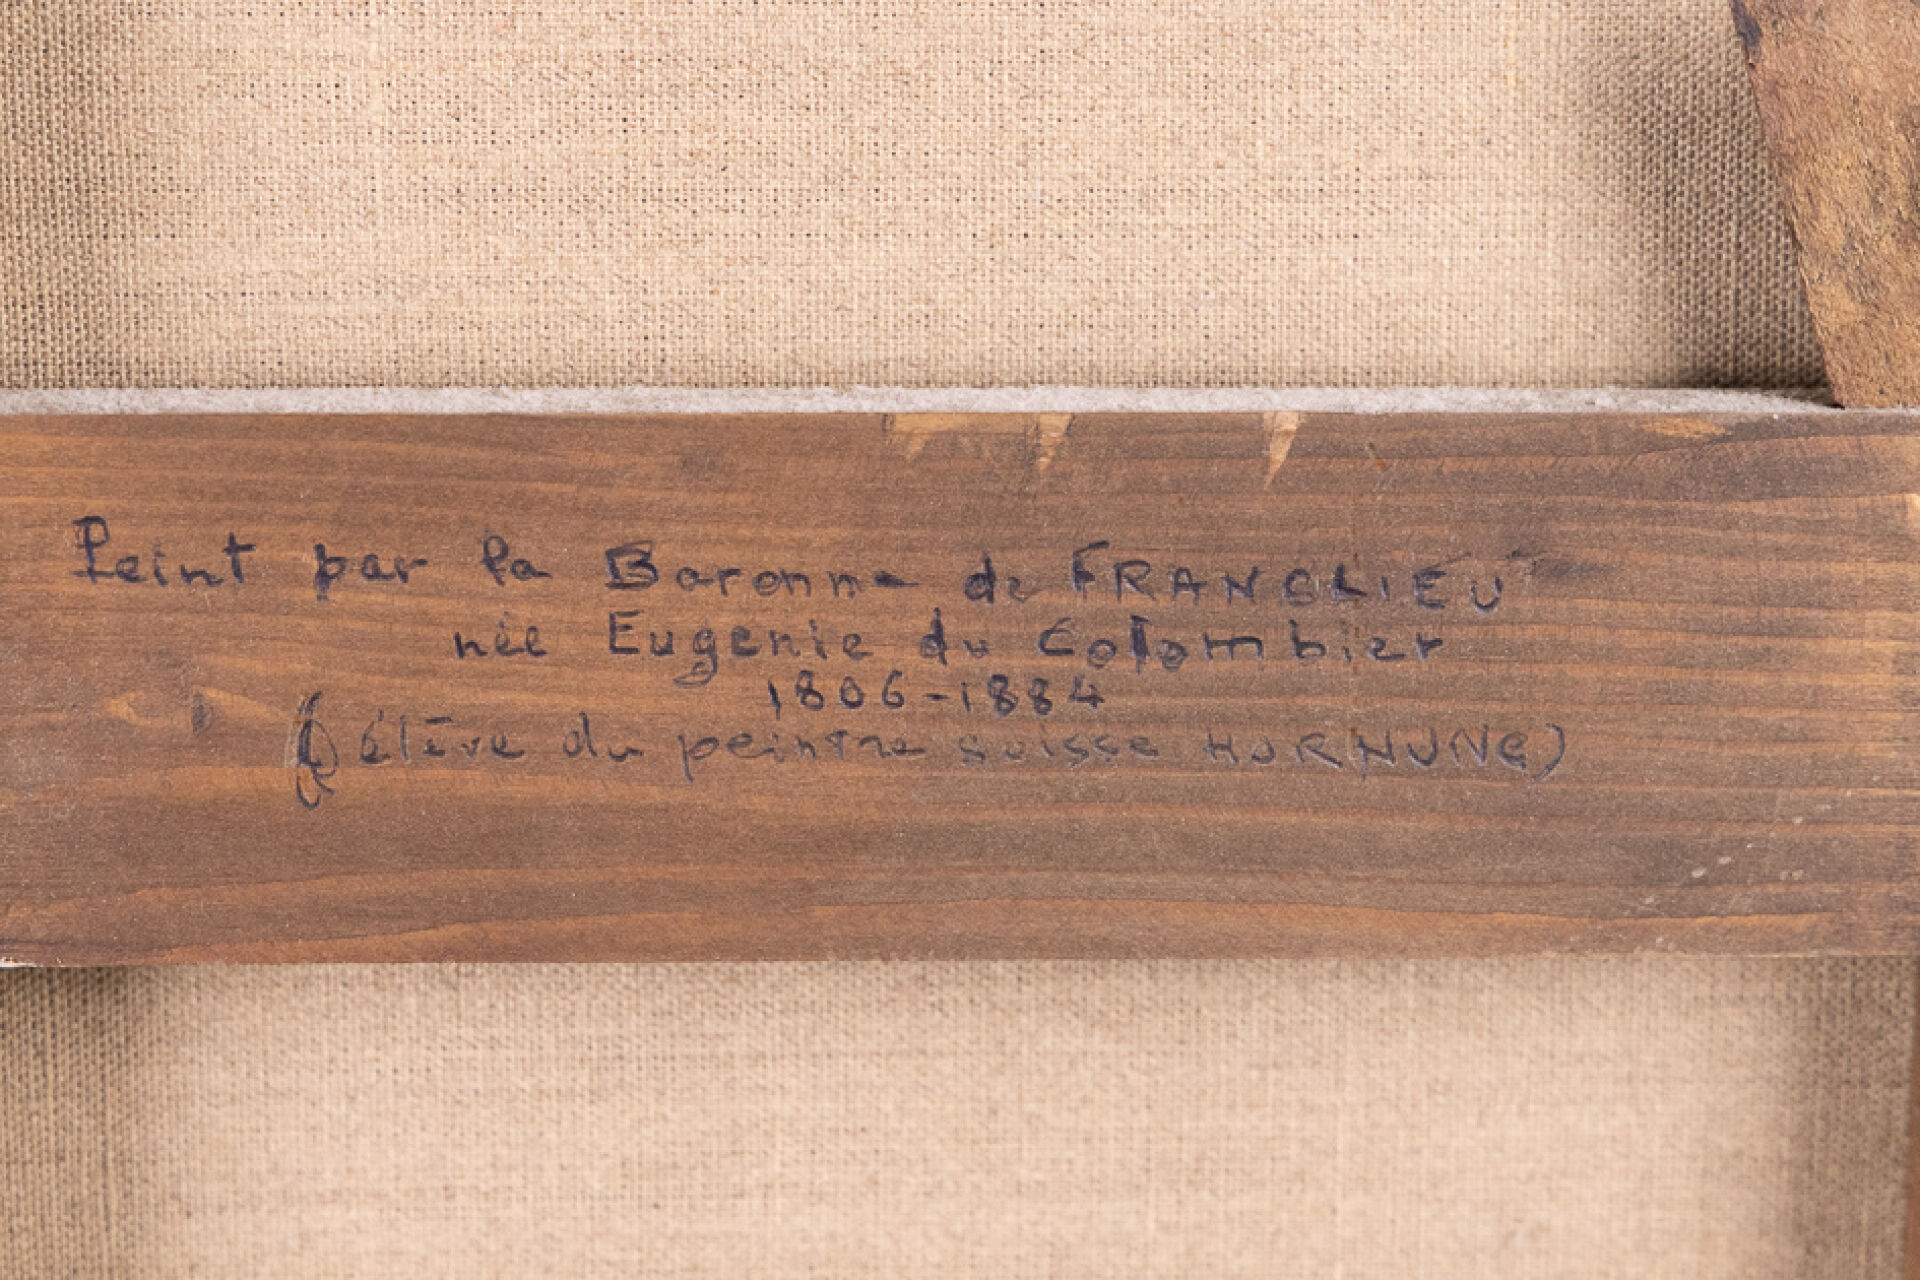 Peint par la Baronne de FRANCLIEU
née Eugenie du Colombier
1806-1884
(élève du peintre suisse HORNUNG)